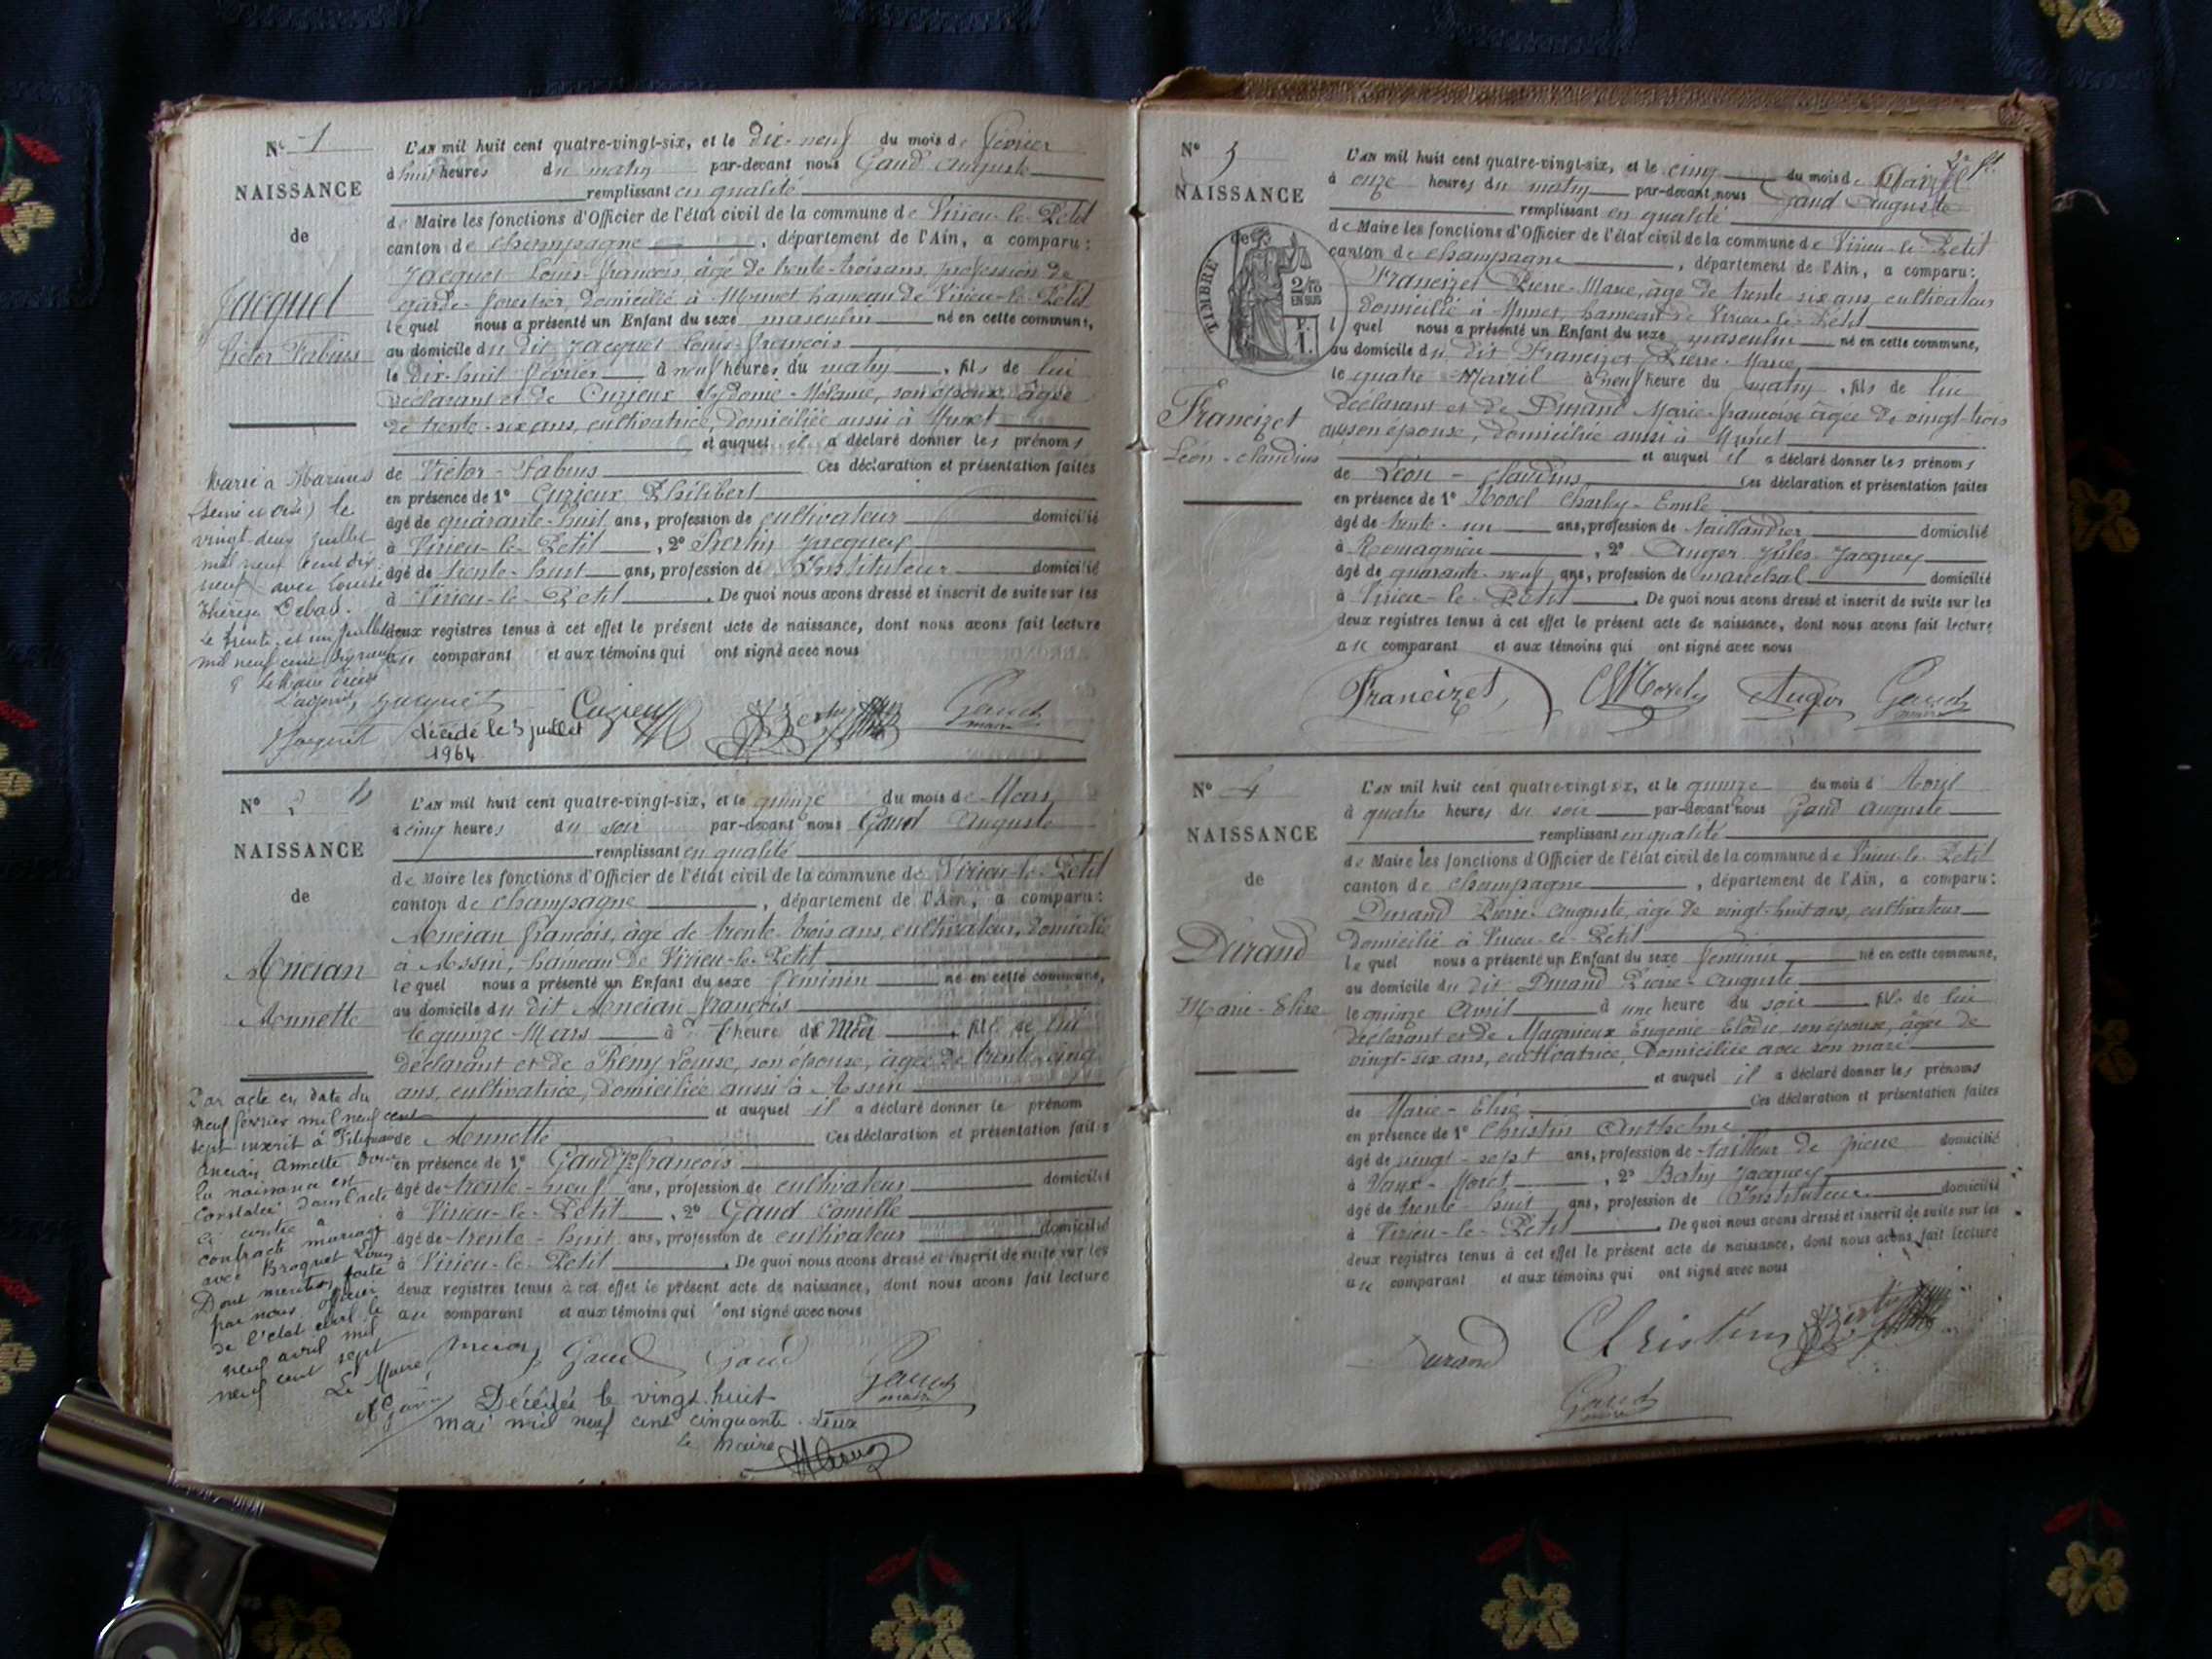 N° 1
NAISSANCE
de
Jacquet
Victor Fabius
L'AN mil huit cent quatre-vingt-six, et le dix-neuf du mois de février
à huit heures du matin par-devant nous Gaud Auguste
remplissant en qualité
de Maire les fonctions d'Officier de l'état civil de la commune de Virieu-le-Petit
canton de Champagne, département de l'Ain, a comparu:
Jacquet Louis-françois, âgé de trente-trois ans, profession de
garde-forestier domicilié à Munet hameau de Virieu-le-Petit
lequel nous a présenté un Enfant du sexe masculin né en cette commune,
au domicile du dit Jacquet Louis-françois
le dix-huit février à neuf heures du matin, fils de lui
déclarant et de Cuzieux Sydonie-Mélanie, son épouse, âgée
de trente-six ans, cultivatrice, domiciliée aussi à Munet
et auquel il a déclaré donner les prénoms
de Victor-Fabius Ces déclaration et présentation faites
en présence de 1° Cuzieux Philibert
âgé de quarante-huit ans, profession de cultivateur domicilié
à Virieu-le-Petit, 2° Bertin Jacques
âgé de trente-huit ans, profession de Instituteur domicilié
à Virieu-le-Petit. De quoi nous avons dressé et inscrit de suite sur les
deux registres tenus à cet effet le présent acte de naissance, dont nous avons fait lecture
au comparant et aux témoins qui ont signé avec nous
Marié à
(Seine et Oise) le
vingt-deux juillet
mil neuf cent dix
neuf avec Louise
Thérèse Debas.
Le trente et un juillet
mil neuf cent dix neuf
Jacquet
Cuzieux
Bertin
Gaud
maire
décédé le 3 juillet
1964
N° 2
NAISSANCE
de
Ancian
Annette
L'AN mil huit cent quatre-vingt-six, et le quinze du mois de Mars
à cinq heures du soir par-devant nous Gaud Auguste
remplissant en qualité
de Maire les fonctions d'Officier de l'état civil de la commune de Virieu-le-Petit
canton de Champagne, département de l'Ain, a comparu:
Ancian françois, âgé de trente-trois ans, cultivateur, domicilié
à Assin, hameau de Virieu-le-Petit
lequel nous a présenté un Enfant du sexe féminin né en cette commune,
au domicile du dit Ancian françois
le quinze Mars à heure de Midi, fille de lui
déclarant et de Rémy Louise, son épouse, âgée de trente-cinq
ans, cultivatrice, domiciliée aussi à Assin
et auquel il a déclaré donner le prénom
de Annette Ces déclaration et présentation faites
en présence de 1° Gaud françois
âgé de trente-neuf ans, profession de cultivateur domicilié
à Virieu-le-Petit, 2° Gaud Camille
âgé de trente-huit ans, profession de cultivateur domicilié
à Virieu-le-Petit. De quoi nous avons dressé et inscrit de suite sur les
deux registres tenus à cet effet le présent acte de naissance, dont nous avons fait lecture
au comparant et aux témoins qui ont signé avec nous
Par acte en date du
neuf février mil neuf cent
sept inscrit à
Ancian Annette dont
la naissance est
constatée dans l'acte
ci contre a
contracté mariage
avec Braquet Louis
Dont mention faite
par nous officier
de l'état civil le
neuf avril mil
neuf cent sept
Le Maire
Ancian
Gaud
Gaud
Gaud
maire
Décédée le vingt huit
mai mil neuf cent cinquante-deux
le maire
N° 3
NAISSANCE
de
TIMBRE
2/10
EN SUS
Francizet
Léon-Claudius
L'AN mil huit cent quatre-vingt-six, et le cinq du mois de Avril
à onze heures du matin par-devant nous Gaud Auguste
remplissant en qualité
de Maire les fonctions d'Officier de l'état civil de la commune de Virieu-le-Petit
canton de Champagne, département de l'Ain, a comparu:
Francizet Pierre-Marie, âgé de trente-six ans, cultivateur
domicilié à Munet, hameau de Virieu-le-Petit
lequel nous a présenté un Enfant du sexe masculin né en cette commune,
au domicile du dit Francizet Pierre-Marie
le quatre Avril à neuf heure du matin, fils de lui
déclarant et de Durand Marie-françoise âgée de vingt-trois
ans son épouse, domiciliée aussi à Munet
et auquel il a déclaré donner les prénoms
de Léon-Claudius Ces déclaration et présentation faites
en présence de 1° Hovel Charles-Emile
âgé de trente-un ans, profession de taillandier domicilié
à Romagnieu, 2° Auger Jules-Jacques
âgé de quarante-neuf ans, profession de maréchal domicilié
à Virieu-le-Petit. De quoi nous avons dressé et inscrit de suite sur les
deux registres tenus à cet effet le présent acte de naissance, dont nous avons fait lecture
au comparant et aux témoins qui ont signé avec nous
Francizet
Auger
Gaud
maire
N° 4
NAISSANCE
de
Durand
Marie-Elise
L'AN mil huit cent quatre-vingt-six, et le quinze du mois d'Avril
à quatre heures du soir par-devant nous Gaud Auguste
remplissant en qualité
de Maire les fonctions d'Officier de l'état civil de la commune de Virieu-le-Petit
canton de Champagne, département de l'Ain, a comparu:
Durand Pierre-Auguste, âgé de vingt-huit ans, cultivateur
domicilié à Virieu-le-Petit
lequel nous a présenté un Enfant du sexe féminin né en cette commune,
au domicile du dit Durand Pierre-Auguste
le quinze Avril à une heure du soir, fille de lui
déclarant et de Magnieux Eugénie Elodie, son épouse, âgée de
vingt-six ans, cultivatrice, domiciliée avec son mari
et auquel il a déclaré donner les prénoms
de Marie-Elise Ces déclaration et présentation faites
en présence de 1° Christin Anthelme
âgé de vingt-sept ans, profession de tailleur de pierre domicilié
à, 2° Bertin Jacques
âgé de trente-huit ans, profession de Instituteur domicilié
à Virieu-le-Petit. De quoi nous avons dressé et inscrit de suite sur les
deux registres tenus à cet effet le présent acte de naissance, dont nous avons fait lecture
au comparant et aux témoins qui ont signé avec nous
Durand
Christin
Bertin
Gaud
maire